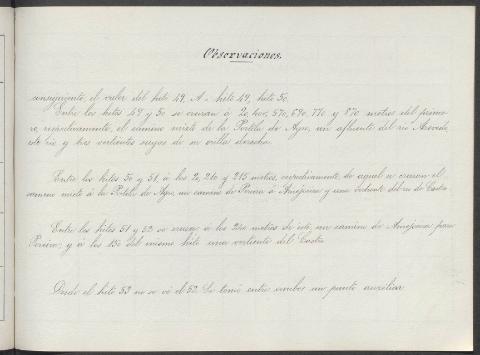 Observaciones.
consiguiente, el valor del hito 49, A - hito 49, hito 50.
Entre los hitos 49 y 50 se cruzan á 20, 400, 570, 690, 770 y 870 metros del prime-
ro, respectivamente, el camino mixto de la Portela de Ayo, un afluente del rio
este rio y tres vertientes suyas de su orilla derecha.
Entre los hitos 50 y 51, á los 20, 210 y 215 metros, respectivamente, de aquel se cruzan el
camino mixto á la Portela de Ayo, un camino de Pereira á y una vertiente del rio de Castro.
Entre los hitos 51 y 52 se cruza á los 240 metros de este, un camino de para
Pereira, y á los 150 del mismo hito una vertiente del Castro.
Desde el hito 53 no se vé el 52. Se tomó entre ambos un punto auxiliar.